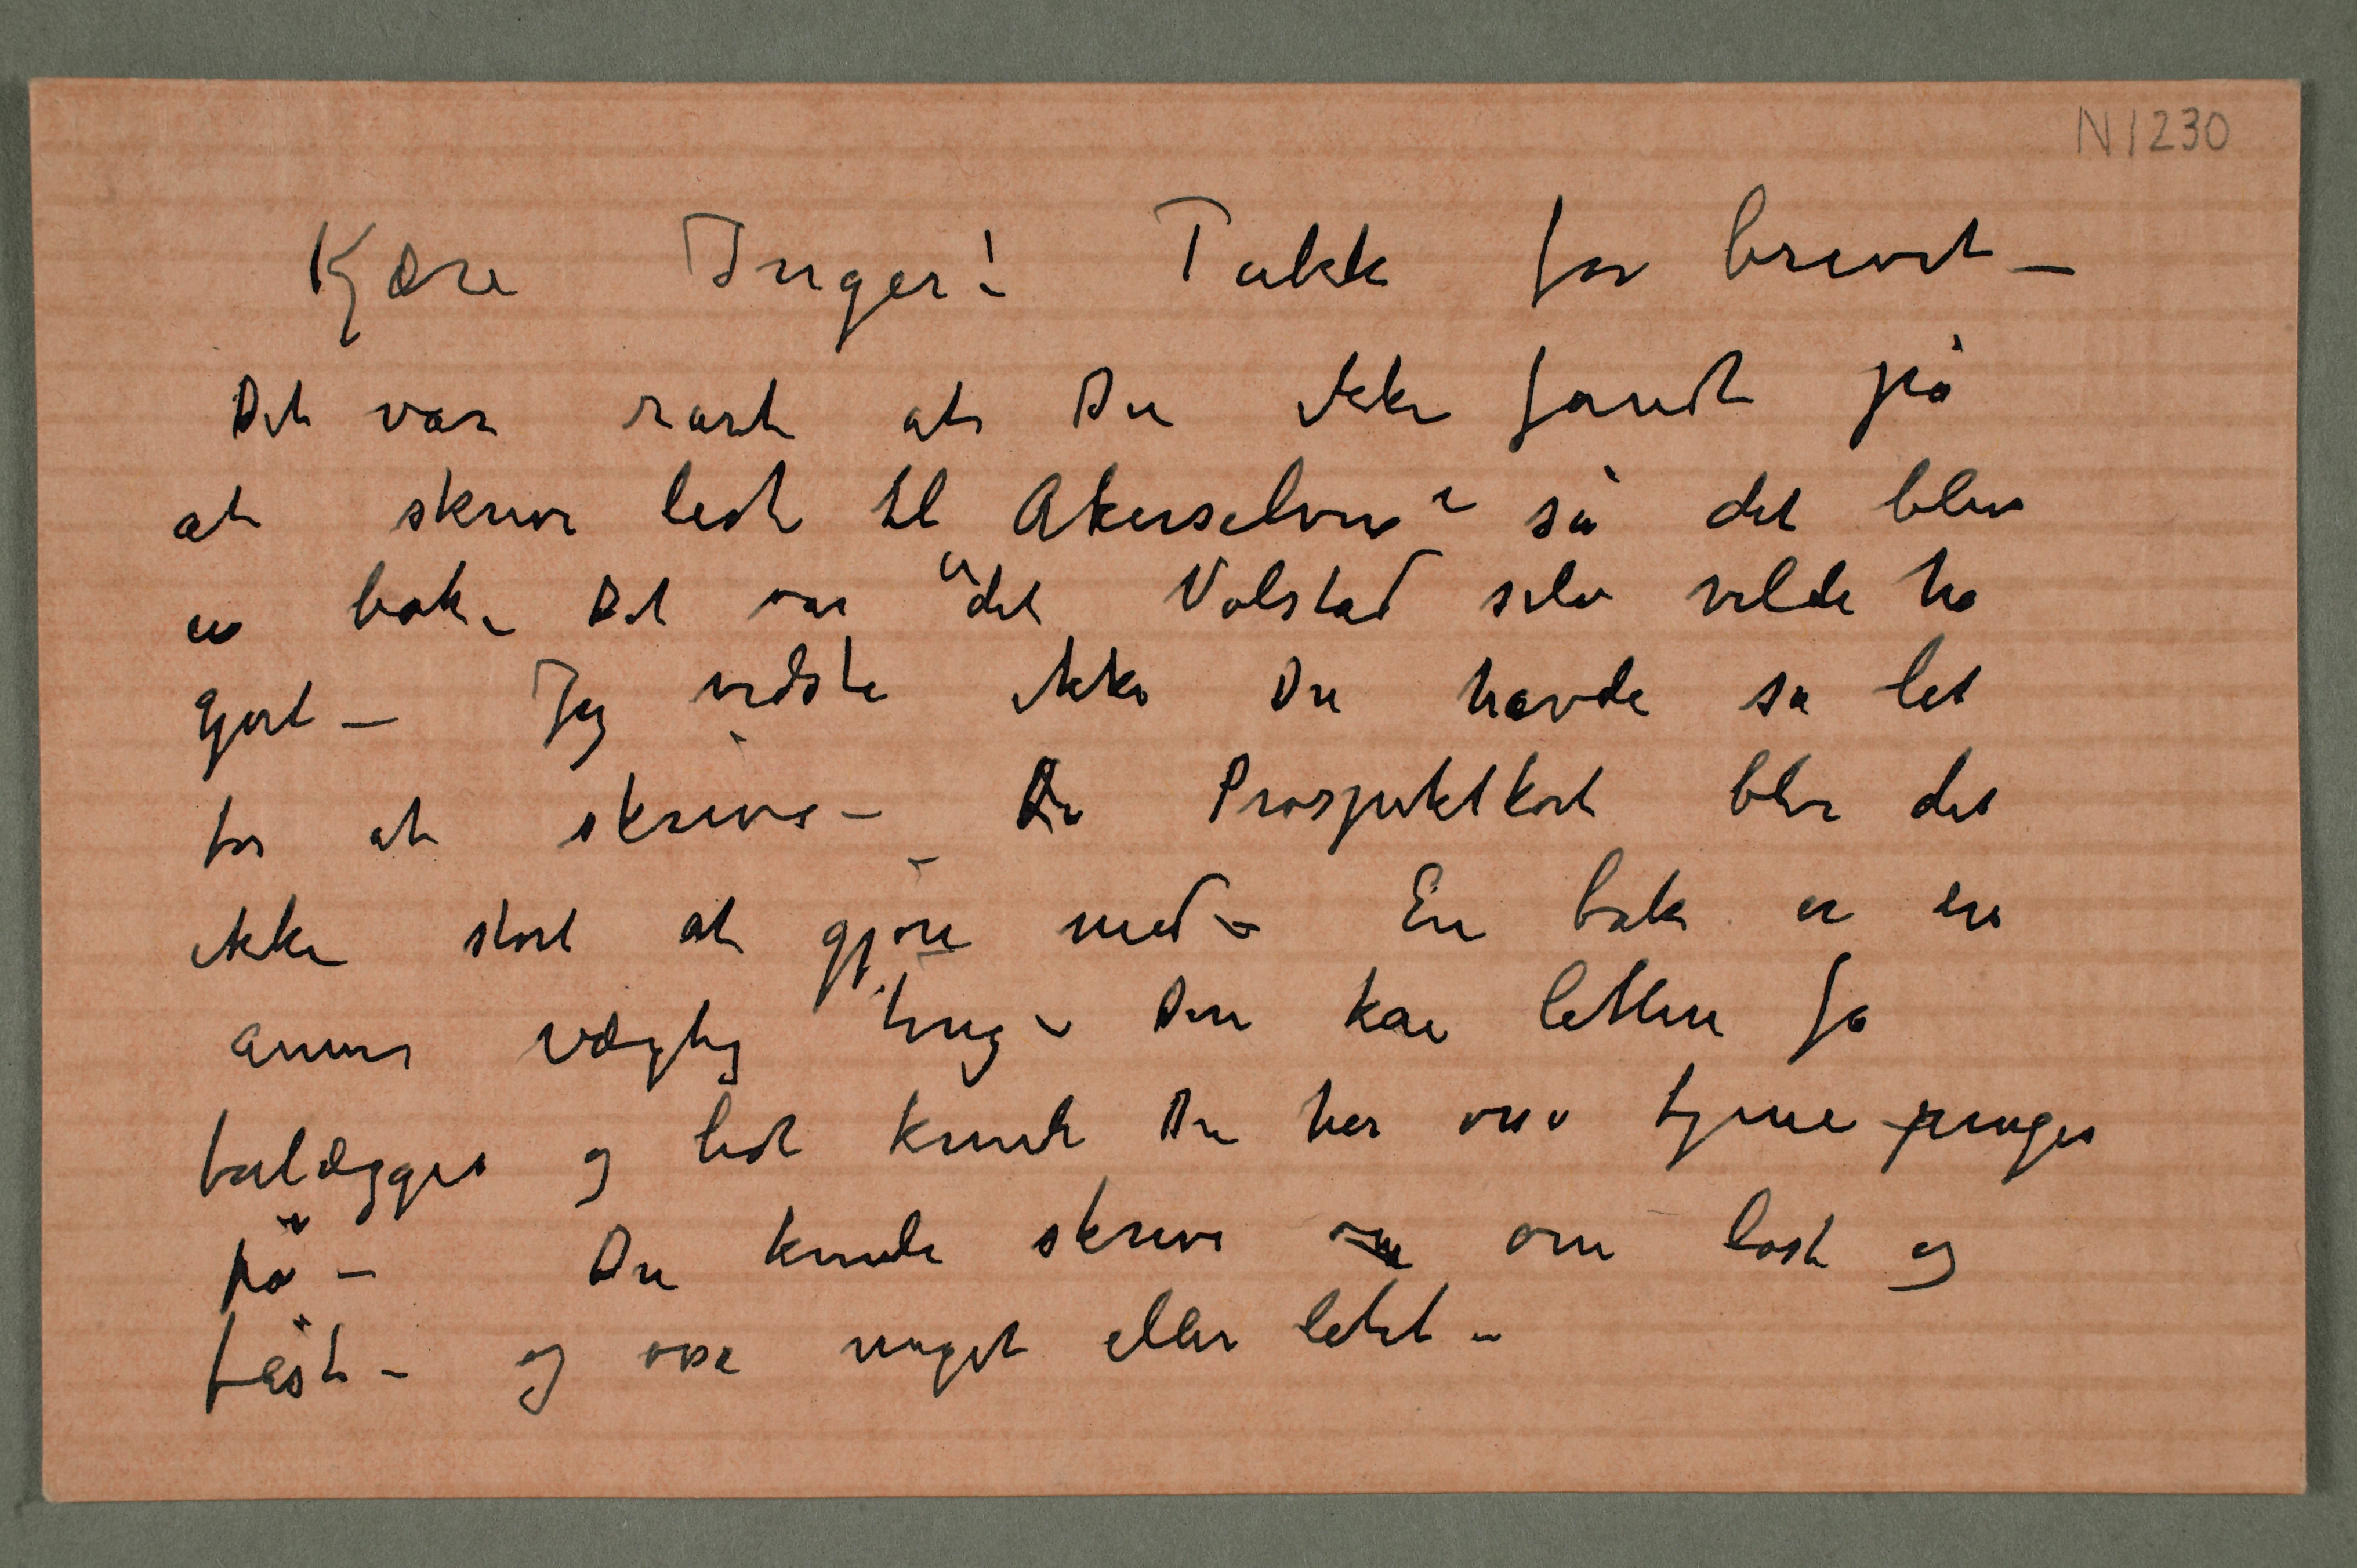 N 1230
Kjære Inger! Takk for brevet –
Det var rart at Du ikke fandt på
at skrive lidt til Akerselven så det blev
en bok – Det var det Volstad selv vilde ha
gjort – Jeg vidste ikke Du havde så let
for at skrive – Prospektkort blir det
ikke stort at gjøre med – En bok er en
annen vægtig ting – Den kan lettere få
forlægger og lidt kunde Du her osse tjene penger
på – Du kunde skrive om løst og
fast – og osse noget eller letet –